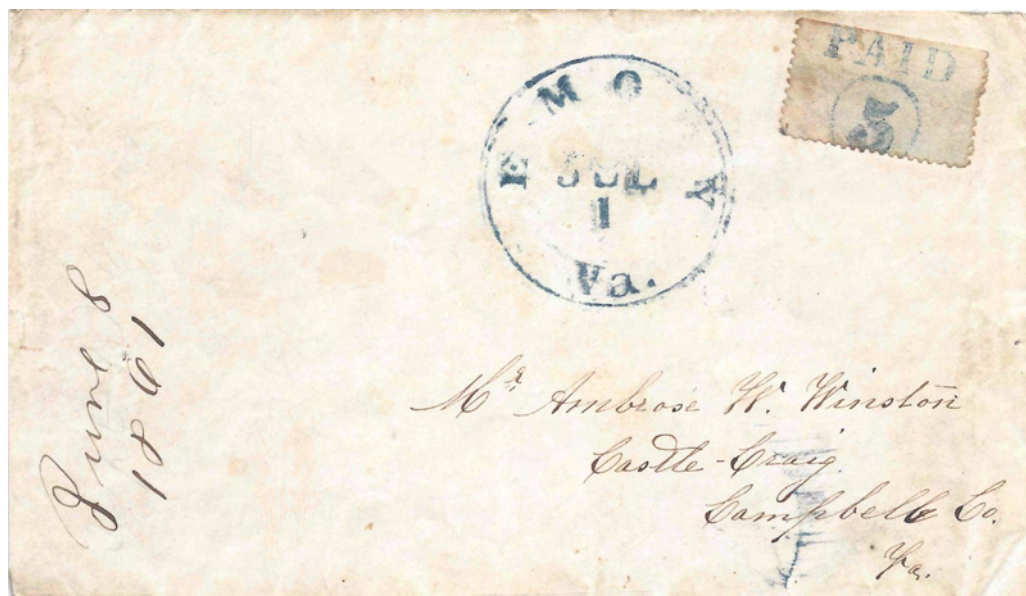 PAID
5
EMORY
JUL
1
Va.
June 8
1861
Mr. Ambrose W. Winston
Castle-Craig.
Campbell Co.
Va.